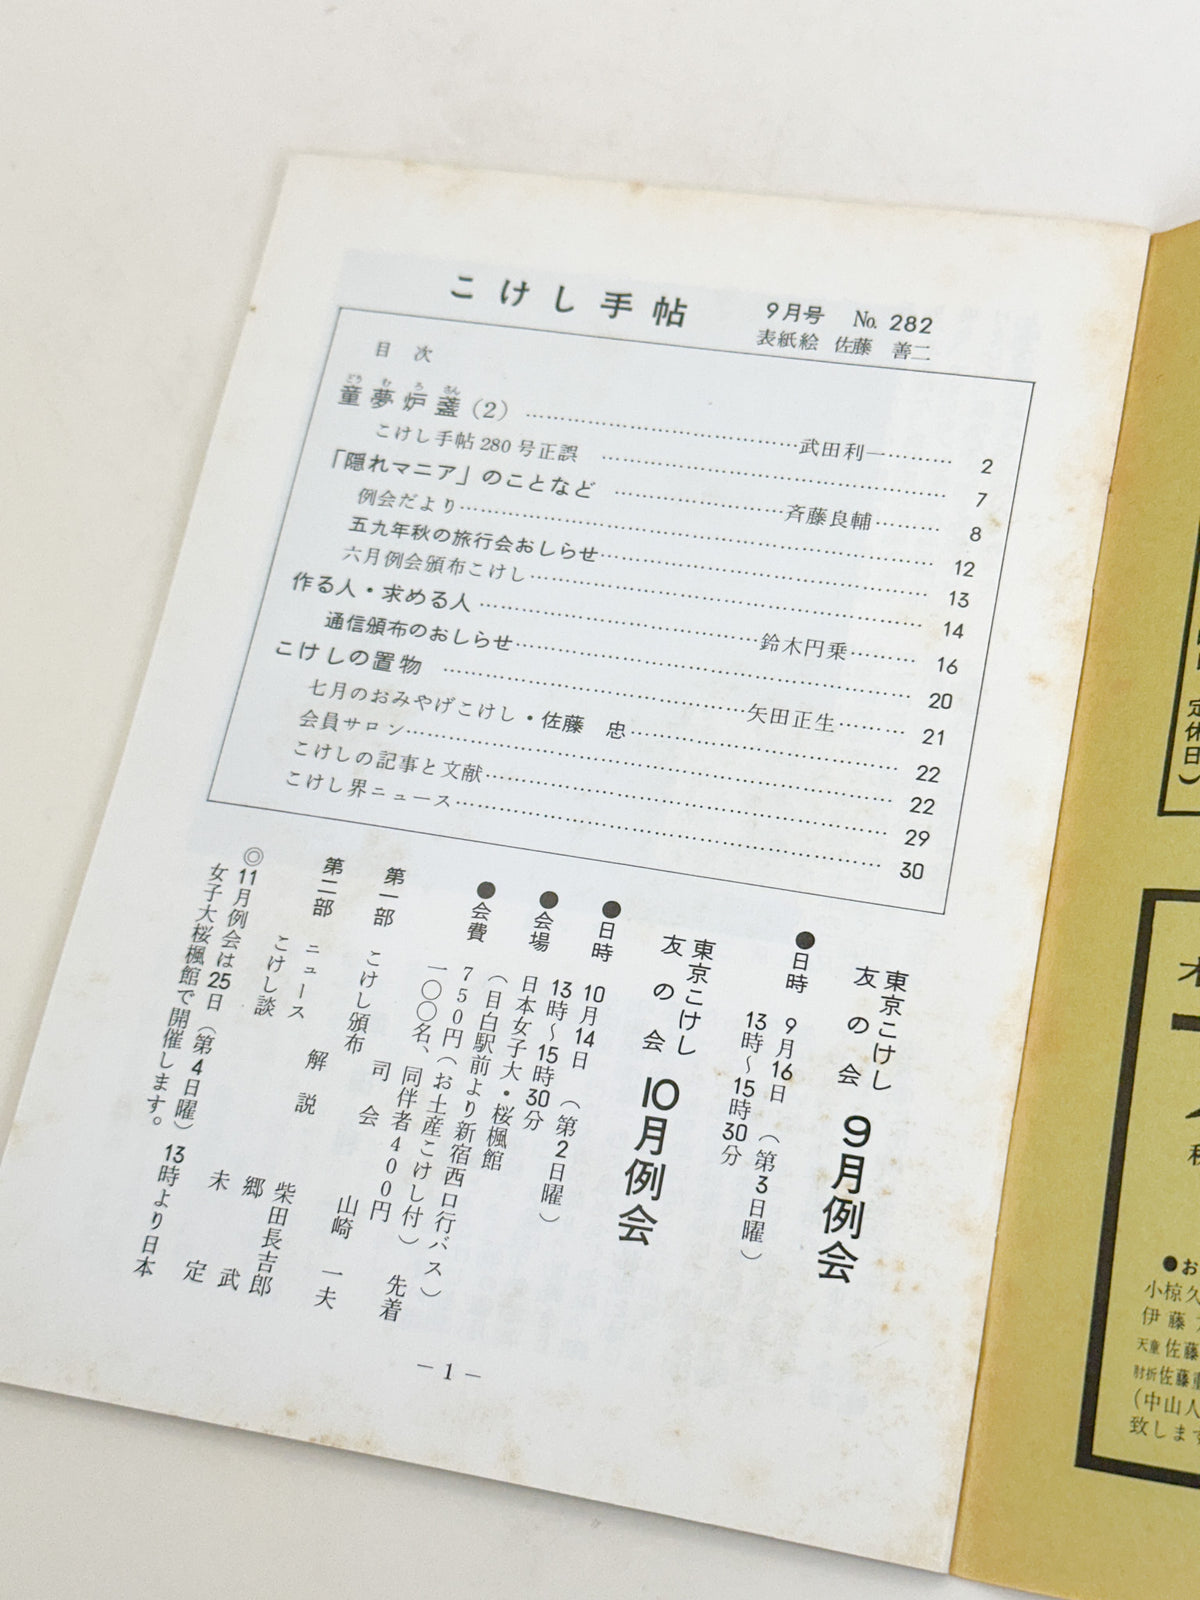 こけし手帖 9月号 No. 282
表紙絵 佐藤 善二
目次
童夢炉盞(2)……武田利一……2
こけし手帖280号正誤……7
「隠れマニア」のことなど……斉藤良輔……8
例会だより……12
五九年秋の旅行会おしらせ……13
六月例会頒布こけし……14
作る人・求める人……鈴木円乗……16
通信頒布のおしらせ……20
こけしの置物……矢田正生……21
七月のおみやげこけし・佐藤 忠……22
会員サロン……22
こけしの記事と文献……29
こけし界ニュース……30
東京こけし友の会 9月例会
●日時 9月16日(第3日曜)
13時〜15時30分
東京こけし友の会 10月例会
●日時 10月14日(第2日曜)
13時〜15時30分
●会場 日本女子大・桜楓館
(目白駅前より新宿西口行バス)
●会費 750円(お土産こけし付)先着
一〇〇名、同伴者400円
第一部 こけし頒布 司会 山崎 一夫
第二部 ニュース 解説 柴田長吉郎
郷 武
こけし談 未定
◎11月例会は25日(第4日曜)13時より日本
女子大桜楓館で開催します。
—1—
定休日)
●お
小椋久
伊藤
天童 佐藤
肘折 佐藤重
(中山人
致します